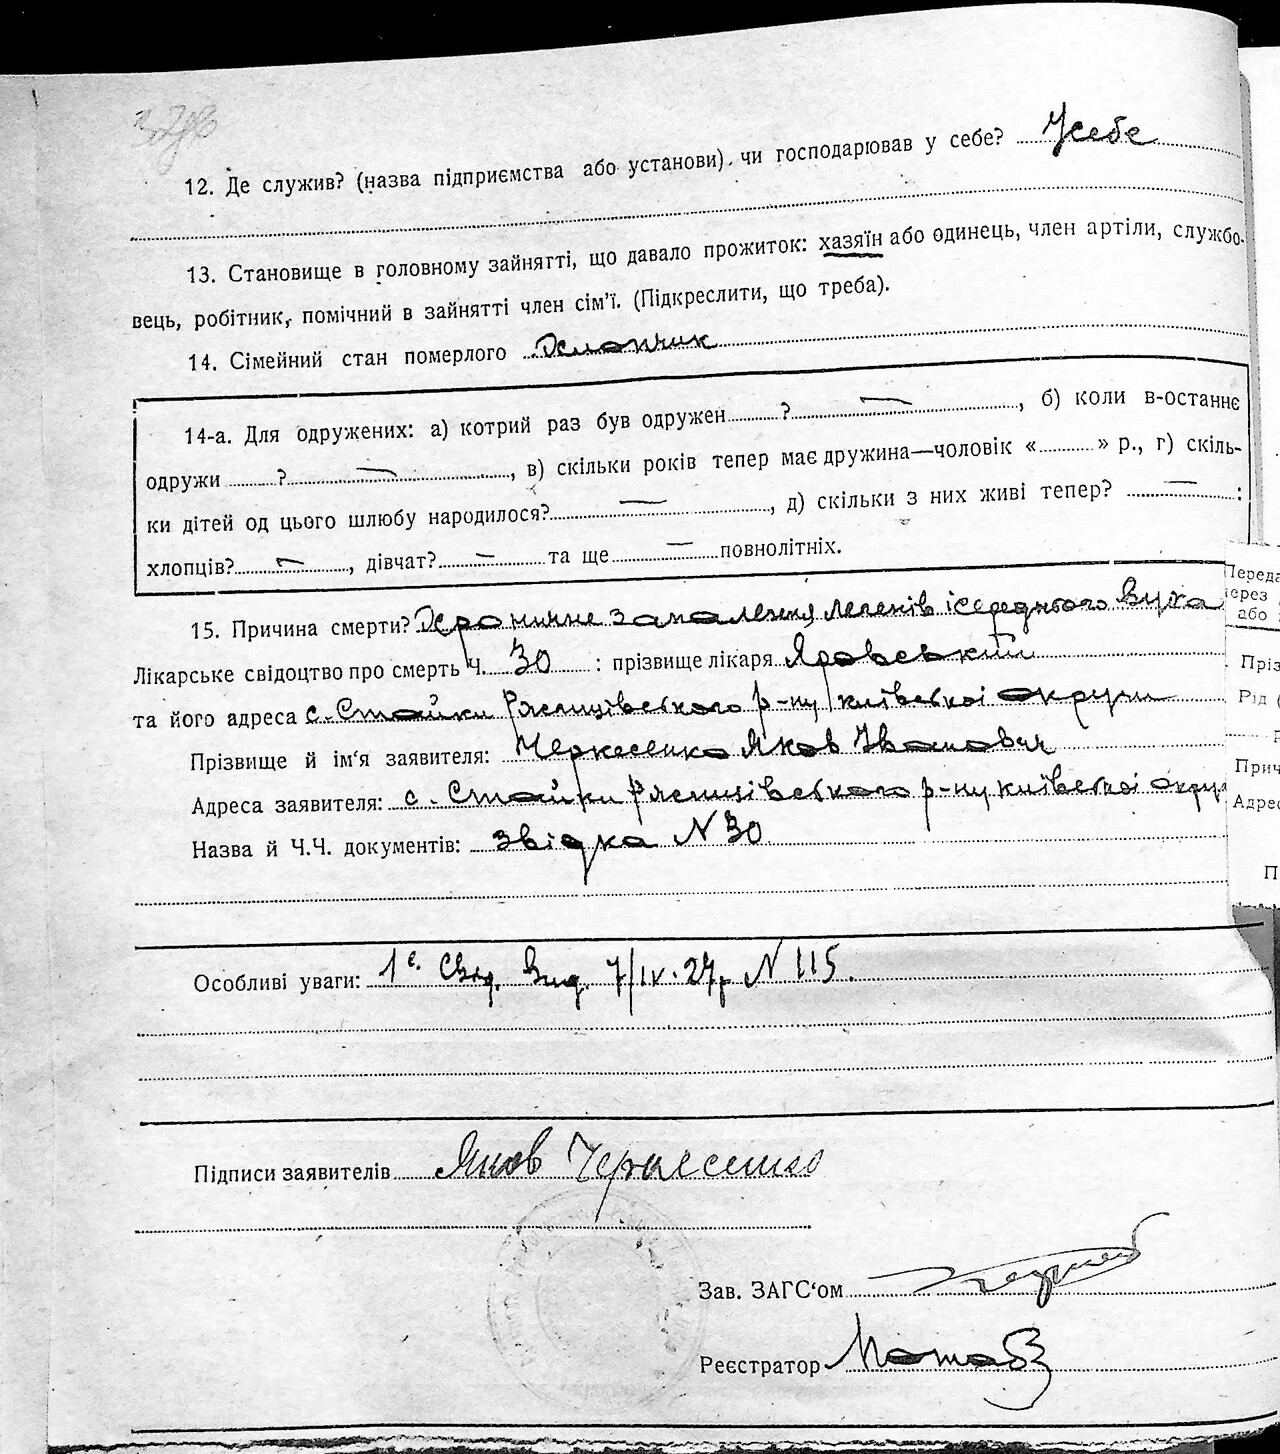 12. Де служив? (назва підприємства або установи) чи господарював у себе? У себе
13. Становище в головному зайнятті, що давало прожиток: хазяїн або одинець, член артіли, службо-
вець, робітник, помічний в зайнятті член сім'ї. (Підкреслити, що треба).
14. Сімейний стан померлого Хлопчик
14-а. Для одружених: а) котрий раз був одружен ? —, б) коли в-останнє
одружи ? —, в) скільки років тепер має дружина—чоловік « » р., г) скіль-
ки дітей од цього шлюбу народилося? —, д) скільки з них живі тепер? — :
хлопців? —, дівчат? — та ще — повнолітніх.
15. Причина смерти? Хроничне запалення легенів і середнього вуха
Лікарське свідоцтво про смерть Ч. 30 : прізвище лікаря Яровський
та його адреса с. Стайки Ржищівського р-ну київської округи
Прізвище й ім'я заявителя: Черкесенко Яков Іванович
Адреса заявителя: с. Стайки Ржищівського р-ну київської округи
Назва й Ч.Ч. документів: звідка N 30
Особливі уваги: 1 с. Свід. вид. 7/IV-27р N 115.
Підписи заявителів Яков Черкесенко
Зав. ЗАГС'ом
Реєстратор
Переда
через
або
Пріз
Рід (
Прич
Адрес
П